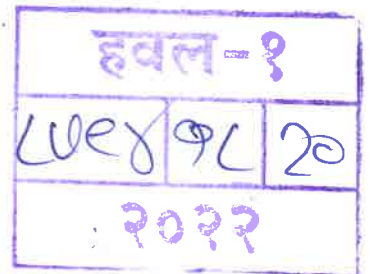 हवल-१
८७९४ १८ २०
२०२२